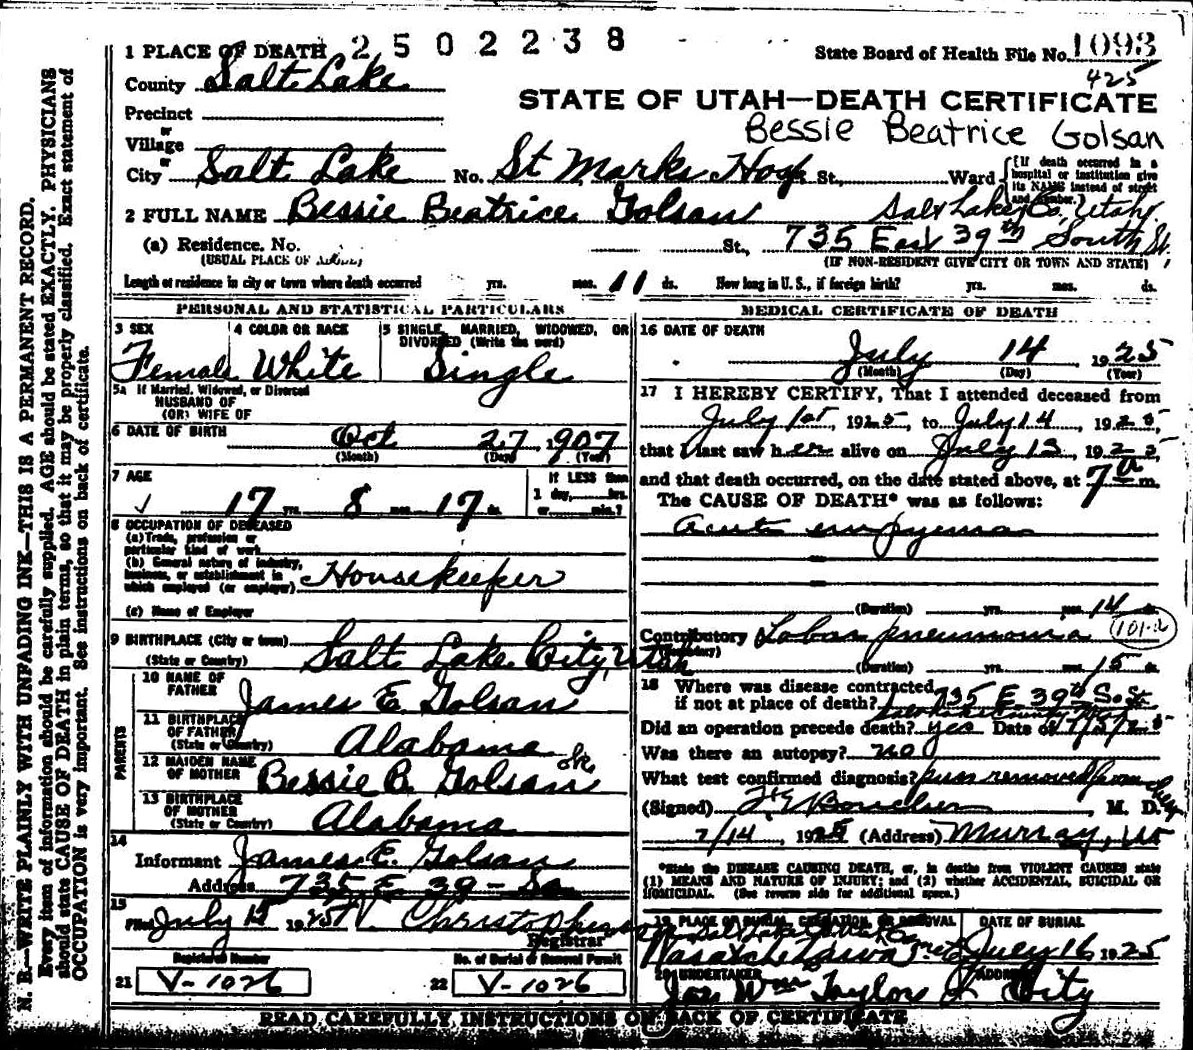 1 PLACE OF DEATH 2502238
State Board of Health File No. 1093
County Salt Lake
425
STATE OF UTAH—DEATH CERTIFICATE
Precinct
Bessie Beatrice Golsan
or
Village
or
City Salt Lake No. St Marks Hosp St., Ward (If death occurred in a hospital or institution give its NAME instead of street and number.)
2 FULL NAME Bessie Beatrice Golsan
Salt Lake Co., Utah
(a) Residence. No. St., 735 East 39th South St.
(USUAL PLACE OF
(IF NON-RESIDENT GIVE CITY OR TOWN AND STATE)
Length of residence in city or town where death occurred yrs. mos. 11 ds. How long in U. S., if foreign birth? yrs. mos. ds.
PERSONAL AND STATISTICAL PARTICULARS
3 SEX
Female
4 COLOR OR RACE
White
5 SINGLE, MARRIED, WIDOWED, OR DIVORCED (Write the word)
Single
5a If Married, Widowed, or Divorced
HUSBAND OF
(OR) WIFE OF
6 DATE OF BIRTH Oct 27, 1907
(Month) (Day) (Year)
7 AGE
17 yrs. 8 mos. 17 ds.
If LESS than
1 day, hrs.
or min.?
8 OCCUPATION OF DECEASED
(a) Trade, profession or
particular kind of work
(b) General nature of industry,
business, or establishment in
which employed (or employer) Housekeeper
(c) Name of Employer
9 BIRTHPLACE (City or town)
(State or Country) Salt Lake City, Utah
PARENTS
10 NAME OF
FATHER James E. Golsan
11 BIRTHPLACE
OF FATHER
(State or Country) Alabama
12 MAIDEN NAME
OF MOTHER Bessie B. Golsan
13 BIRTHPLACE
OF MOTHER
(State or Country) Alabama
14
Informant James E. Golsan
Address 735 E. 39 - So
15
Filed July 15 1925
Registrar
Registered Number
No. of Burial or Removal Permit
21 V-1026
22 V-1026
MEDICAL CERTIFICATE OF DEATH
16 DATE OF DEATH
July 14, 1925
(Month) (Day) (Year)
17 I HEREBY CERTIFY, That I attended deceased from
July 1st, 1925, to July 14, 1925,
that I last saw her alive on July 13, 1925,
and that death occurred, on the date stated above, at 7 a m.
The CAUSE OF DEATH* was as follows:
Acute empyema
(Duration) yrs. mos. 14 ds.
Contributory Lobar pneumonia
(Secondary)
(Duration) yrs. mos. 15 ds.
18 Where was disease contracted
if not at place of death? 735 E. 39th So. St.
Did an operation precede death? yes Date of
Was there an autopsy? no
What test confirmed diagnosis? pus removed from chest
(Signed) M. D.
7/14, 1925 (Address) Murray, Ut
*State the DISEASE CAUSING DEATH, or, in deaths from VIOLENT CAUSES state
(1) MEANS AND NATURE OF INJURY; and (2) whether ACCIDENTAL, SUICIDAL OR
HOMICIDAL. (See reverse side for additional space.)
19 PLACE OF BURIAL, CREMATION, OR REMOVAL
Wasatch Lawn
DATE OF BURIAL
July 16 1925
20 UNDERTAKER
Jos Wm Taylor
ADDRESS
City
READ CAREFULLY, INSTRUCTIONS ON BACK OF CERTIFICATE
N. B.—WRITE PLAINLY WITH UNFADING INK—THIS IS A PERMANENT RECORD.
Every item of information should be carefully supplied. AGE should be stated EXACTLY. PHYSICIANS
should state CAUSE OF DEATH in plain terms, so that it may be properly classified. Exact statement of
OCCUPATION is very important. See instructions on back of certificate.